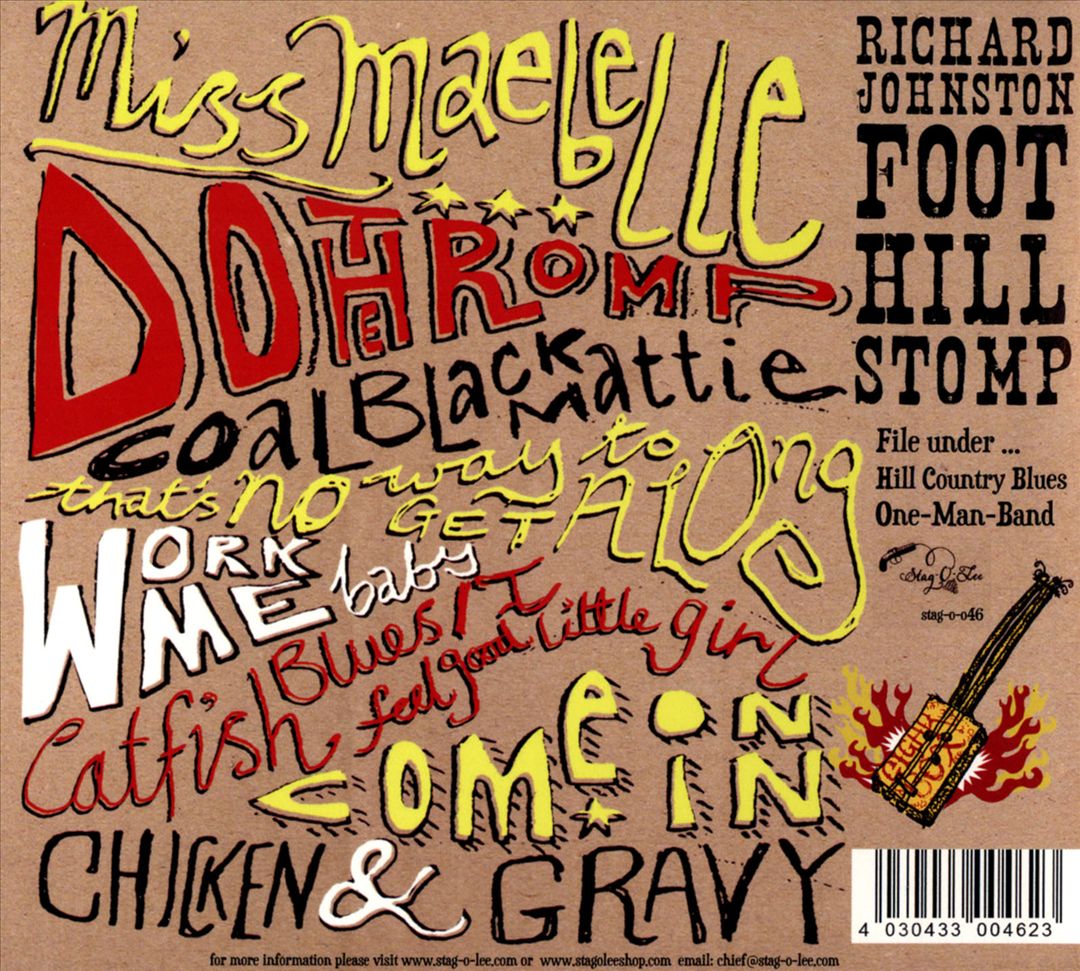 Miss Maebelle
DO THE ROMP
COAL BLACK Mattie
that's no way to
GET ALONG
WORK
ME baby
Catfish Blues / I
feel good little girl
COME ON
IN
CHICKEN & GRAVY
RICHARD
JOHNSTON
FOOT
HILL
STOMP
File under ...
Hill Country Blues
One-Man-Band
Stag-O-Lee
stag-o-046
4 030433 004623
for more information please visit www.stag-o-lee.com or www.stagoleeshop.com email: chief@stag-o-lee.com